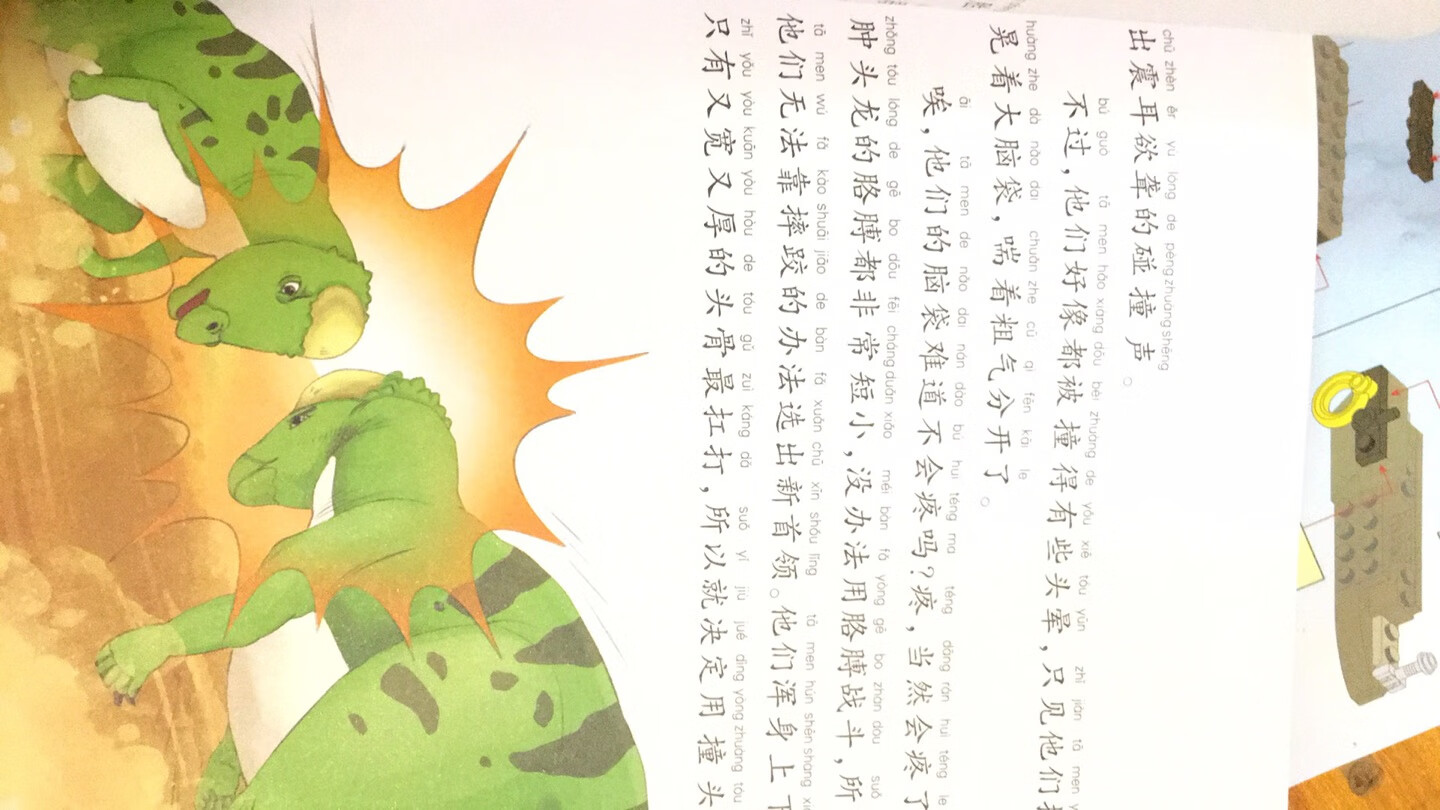 chū zhèn ěr yù lóng de pèng zhuàng shēng
出震耳欲聋的碰撞声。
bú guò tā men hǎo xiàng dōu bèi zhuàng de yǒu xiē tóu yūn zhǐ jiàn tā men
不过,他们好像都被撞得有些头晕,只见他们
huàng zhe dà nǎo dai chuǎn zhe cū qì fēn kāi le
晃着大脑袋,喘着粗气分开了。
āi tā men de nǎo dai nán dào bú huì téng ma téng dāng rán huì téng le
唉,他们的脑袋难道不会疼吗?疼,当然会疼了
zhǒng tóu lóng de gē bo dōu fēi cháng duǎn xiǎo méi bàn fǎ yòng gē bo zhàn dòu suǒ
肿头龙的胳膊都非常短小,没办法用胳膊战斗,所
tā men wú fǎ kào shuāi jiāo de bàn fǎ xuǎn chū xīn shǒu lǐng tā men hún shēn shàng
他们无法靠摔跤的办法选出新首领。他们浑身上下
zhǐ yǒu yòu kuān yòu hòu de tóu gǔ zuì káng dǎ suǒ yǐ jiù jué dìng yòng zhuàng tóu
只有又宽又厚的头骨最扛打,所以就决定用撞头